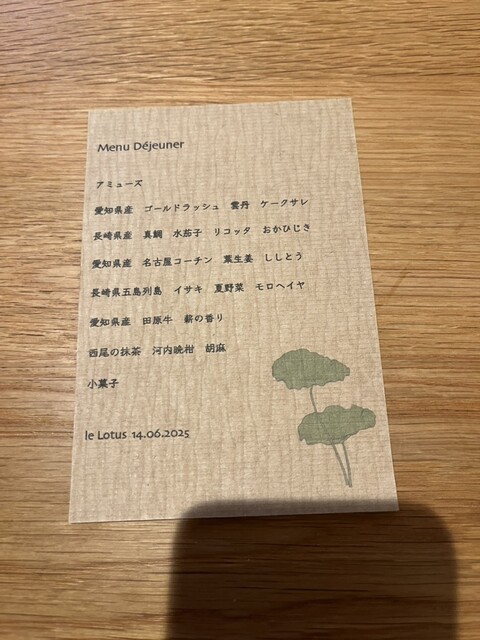 Menu Déjeuner
アミューズ
愛知県産 ゴールドラッシュ 雲丹 ケークサレ
長崎県産 真鯛 水茄子 リコッタ おかひじき
愛知県産 名古屋コーチン 葉生姜 ししとう
長崎県五島列島 イサキ 夏野菜 モロヘイヤ
愛知県産 田原牛 薪の香り
西尾の抹茶 河内晩柑 胡麻
小菓子
le Lotus 14.06.2025